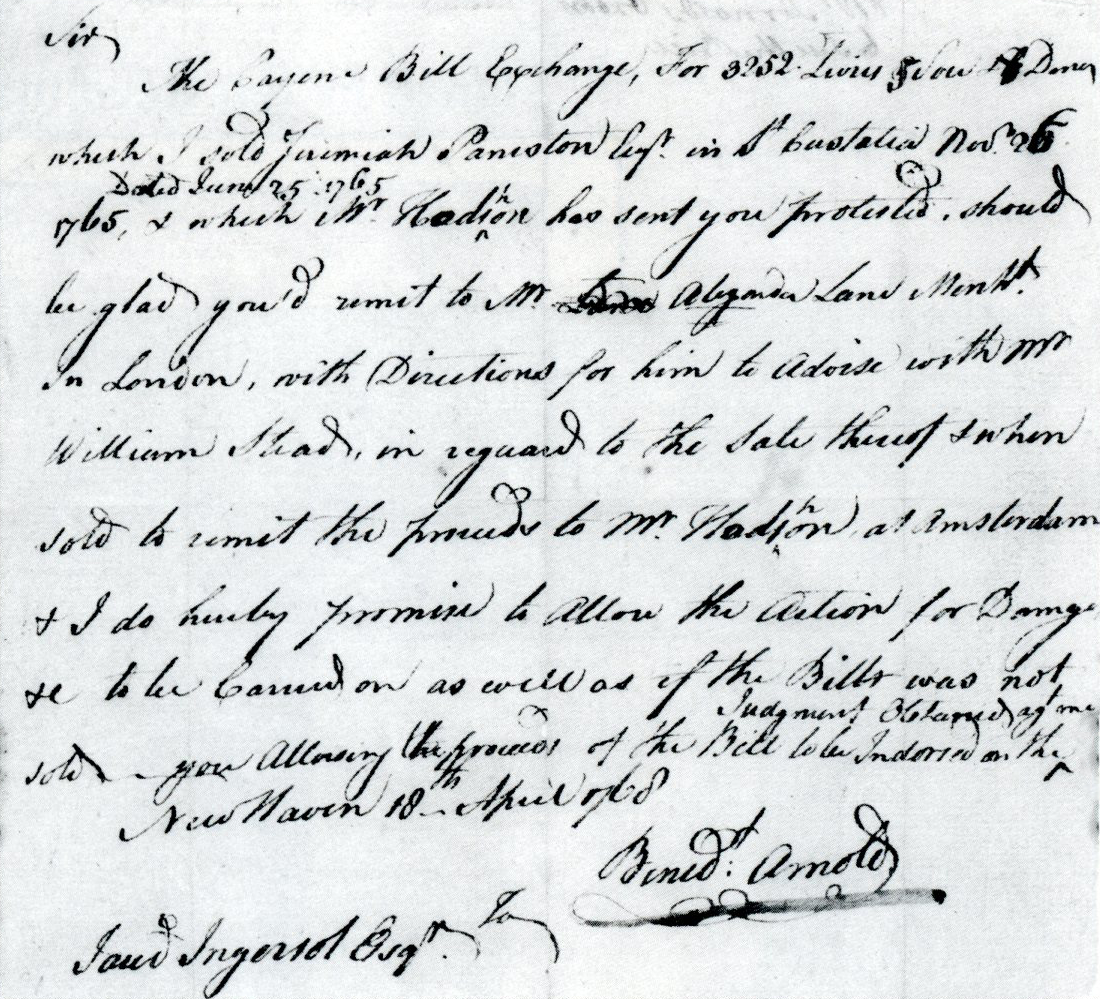 Sir
The Cayene Bill Exchange, For 3252 Livres 5 Sou Dener
which I sold Jeremiah Paniston Esqr. in St Eustatia Novr. 26
Dated June 25 1765
1765, & which Mr Hodshon has sent you protested, should
be glad you'd remit to Mr Alexander Lane Mercht.
In London, with Directions for him to Advise with Mr
William Stead, in reguard to the Sale thereof & when
sold to remit the proceeds to Mr. Hodshon, at Amsterdam
& I do hereby promise to Allow the Action for Damge
&c to be Carried on as well as if the Bills was not
Judgment Obtained agt me
sold — you Allowing the proceeds of the Bill to be Indorsed on the
New Haven 18th April 1768
Bened.t Arnold
To
Jared Ingersol Esqr.